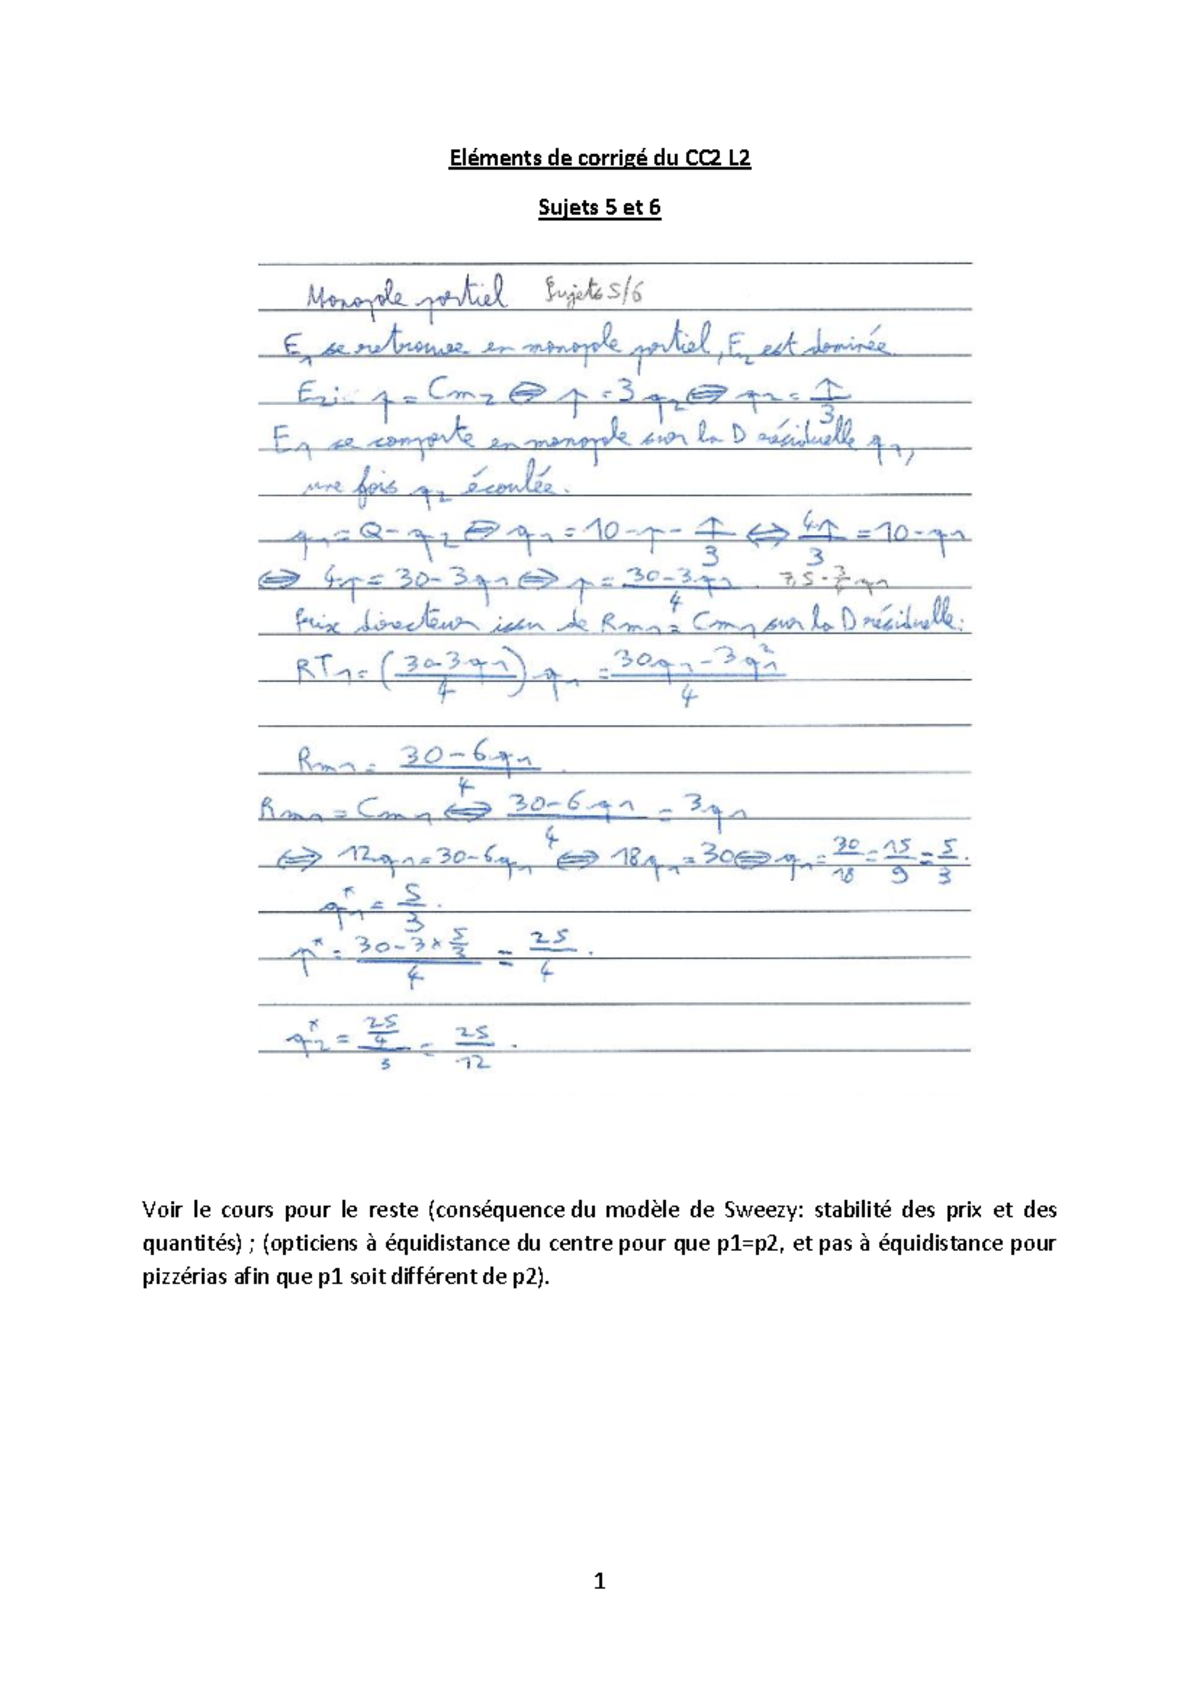 Eléments de corrigé du CC2 L2
Sujets 5 et 6
Monopole partiel Sujets 5/6
E1 se retrouve en monopole partiel, E2 est dominée.
E2 : p = Cm2 ⇔ p = 3q2 ⇔ q2 = p/3
E1 se comporte en monopole sur la D résiduelle q1,
une fois q2 écoulée.
q1 = Q - q2 ⇔ q1 = 10 - p - p/3 ⇔ 4p/3 = 10 - q1
⇔ 4p = 30 - 3q1 ⇔ p = (30 - 3q1)/4 . 7,5 - 3/4 q1
Prix directeur issu de Rm1 = Cm1 sur la D résiduelle :
RT1 = ((30 - 3q1)/4) q1 = (30q1 - 3q1²)/4
Rm1 = (30 - 6q1)/4 .
Rm1 = Cm1 ⇔ (30 - 6q1)/4 = 3q1
⇔ 12q1 = 30 - 6q1 ⇔ 18q1 = 30 ⇔ q1 = 30/18 = 15/9 = 5/3 .
q1* = 5/3 .
p* = (30 - 3 × 5/3)/4 = 25/4 .
q2* = (25/4)/3 = 25/12 .
Voir le cours pour le reste (conséquence du modèle de Sweezy: stabilité des prix et des
quantités) ; (opticiens à équidistance du centre pour que p1=p2, et pas à équidistance pour
pizzérias afin que p1 soit différent de p2).
1